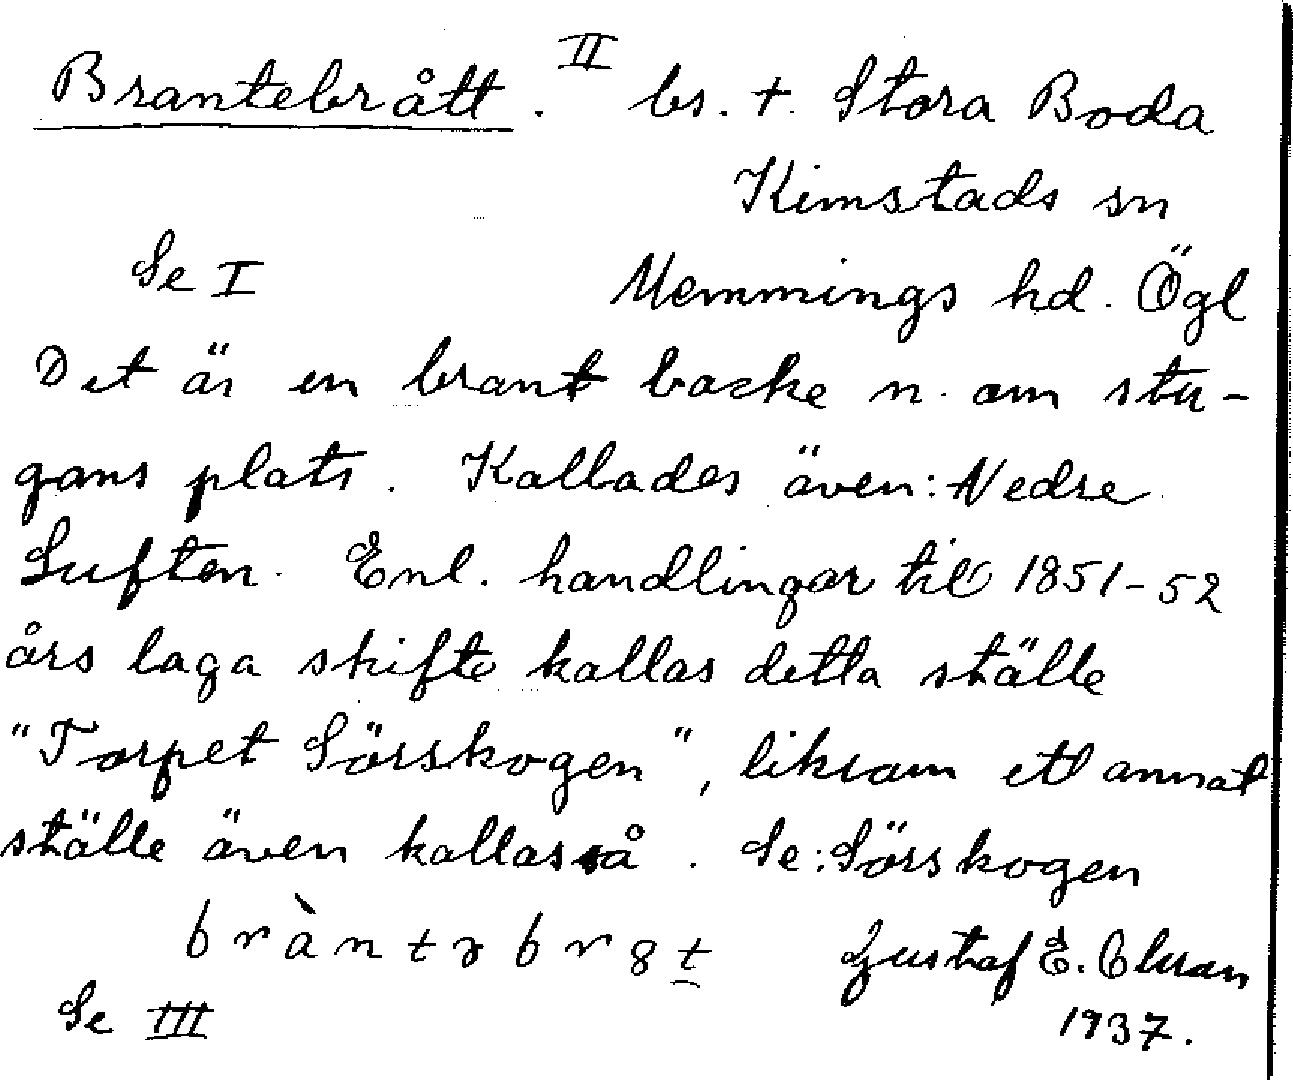 Brantebrått. II bs. t. Stora Boda
Kimstads sn
Se I Memmings hd. Ögl
Det är en brant backe n. om stu-
gans plats. Kallades även: Nedre
Luften. Enl. handlingar till 1851-52
års laga skifte kallas detta ställe
"Torpet Sörskogen", liksom ett annat
ställe även kallas så. Se: Sörskogen
Gustaf E.
Se III 1937.